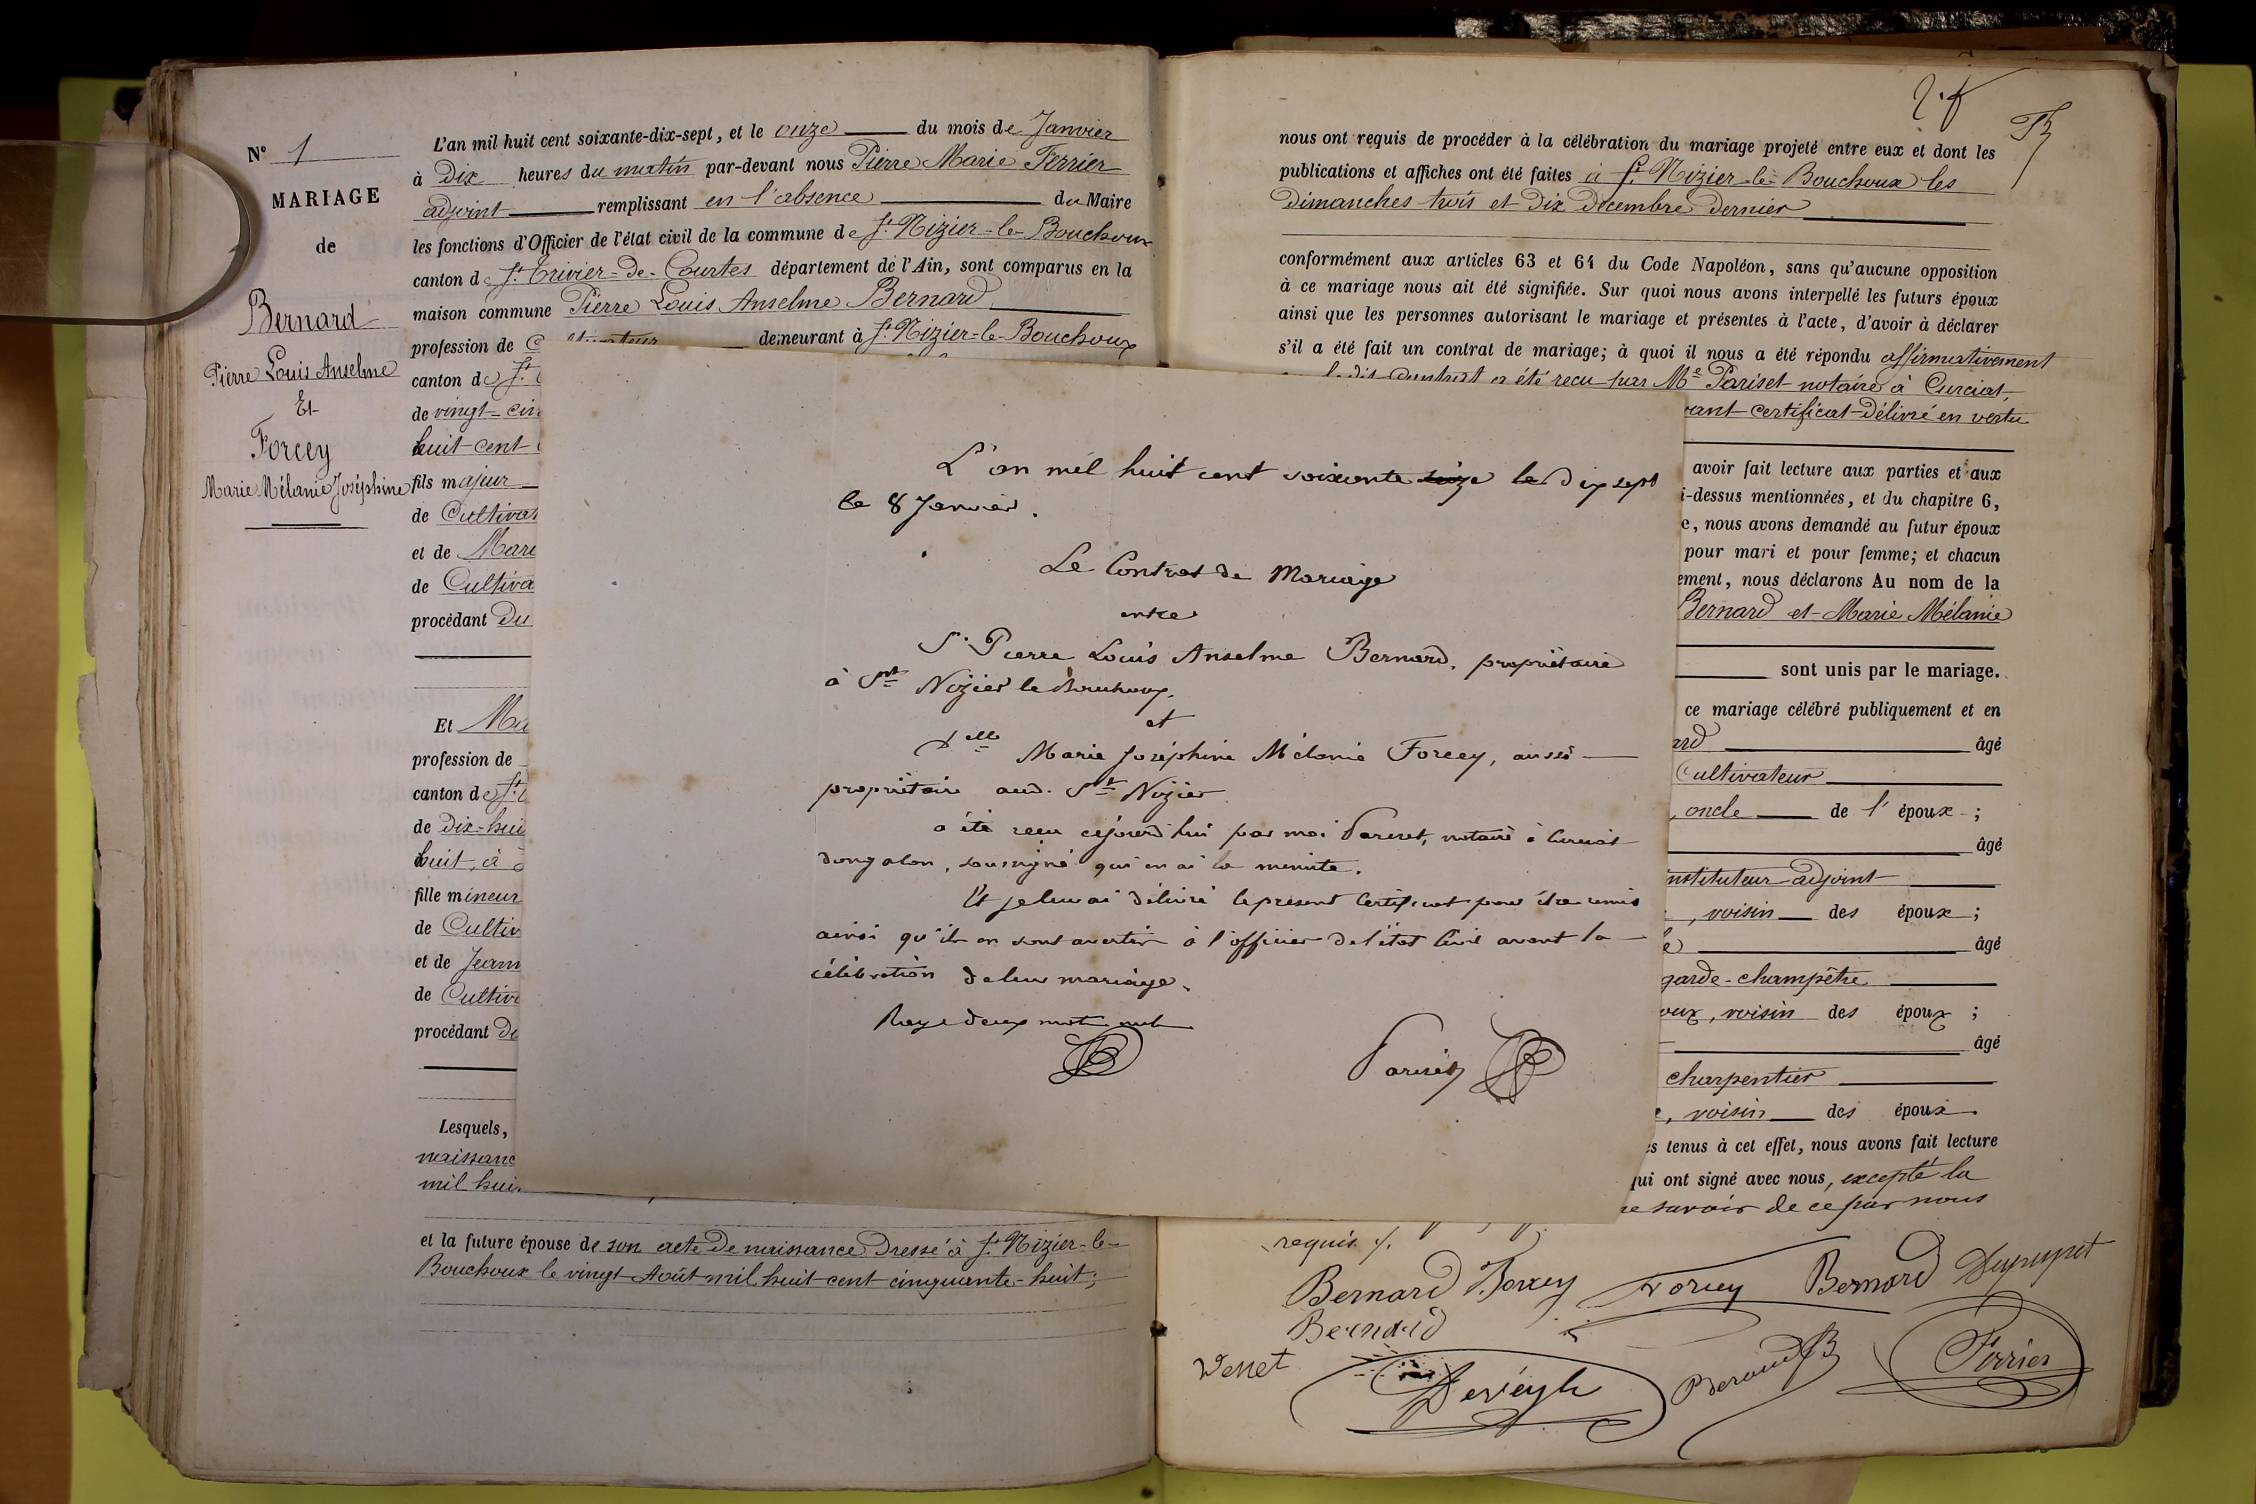 N° 1
MARIAGE
de
Bernard
Pierre Louis Anselme
Et
Forcey
Marie Mélanie Joséphine
L'an mil huit cent soixante-dix-sept, et le onze du mois de Janvier
à Dix heures du matin par-devant nous Pierre Marie Ferrier
adjoint remplissant en l'absence du Maire
les fonctions d'Officier de l'état civil de la commune de St Nizier-le-Bouchoux
canton de St Trivier-de-Courtes département de l'Ain, sont comparus en la
maison commune Pierre Louis Anselme Bernard
profession de demeurant à St Nizier-le-Bouchoux
canton de St
de vingt-cin
huit-cent
fils majeur
de Cultivat
et de Mari
de Cultiva
procédant Du
Et Ma
profession de
canton de St
de Dix-hui
huit, à
fille mineur
de Cultiv
et de Jeann
de Cultiv
procédant de
Lesquels,
naissanc
mil hui
et la future épouse de son acte De naissance Dressé à St Nizier-le-
Bouchoux le vingt Août mil huit cent cinquante-huit;
L'an mil huit cent soixante seize le dix sept
le 8 Janvier.
Le Contrat de Mariage
entre
Sr Pierre Louis Anselme Bernard, propriétaire
à Snt Nizier le Bouchoux,
et
Delle Marie Joséphine Mélanie Forcey, aussi
propriétaire aud. Snt Nizier
a été reçu cejourd'hui par moi Pariset, notaire à Curciat
dongalon, soussigné qui en ai la minute.
Et je leur ai délivré le présent Certificat pour être remis
ainsi qu'ils en sont avertis à l'officier de l'état Civil avant la
célébration de leur mariage.
Rayé deux mots nuls
Pariset
2.f
nous ont requis de procéder à la célébration du mariage projeté entre eux et dont les
publications et affiches ont été faites à St Nizier-le-Bouchoux les
Dimanches trois et Dix Décembre Dernier
conformément aux articles 63 et 64 du Code Napoléon, sans qu'aucune opposition
à ce mariage nous ait été signifiée. Sur quoi nous avons interpellé les futurs époux
ainsi que les personnes autorisant le mariage et présentes à l'acte, d'avoir à déclarer
s'il a été fait un contrat de mariage; à quoi il nous a été répondu affirmativement
ledit Contrat a été reçu par Me Pariset notaire à Curciat,
vant certificat Délivré en vertu
avoir fait lecture aux parties et aux
i-dessus mentionnées, et du chapitre 6,
e, nous avons demandé au futur époux
pour mari et pour femme; et chacun
ement, nous déclarons Au nom de la
Bernard et Marie Mélanie
sont unis par le mariage.
ce mariage célébré publiquement et en
ard âgé
Cultivateur
, oncle de l'époux;
âgé
instituteur-adjoint
, voisin des époux;
le âgé
garde-champêtre
oux, voisin des époux;
âgé
charpentier
e, voisin des époux
es tenus à cet effet, nous avons fait lecture
qui ont signé avec nous, excepté la
ne savoir de ce par nous
requis
Bernard Forcey Forcey Bernard Dupupet
Bernard
Venet Bernard Ferrier